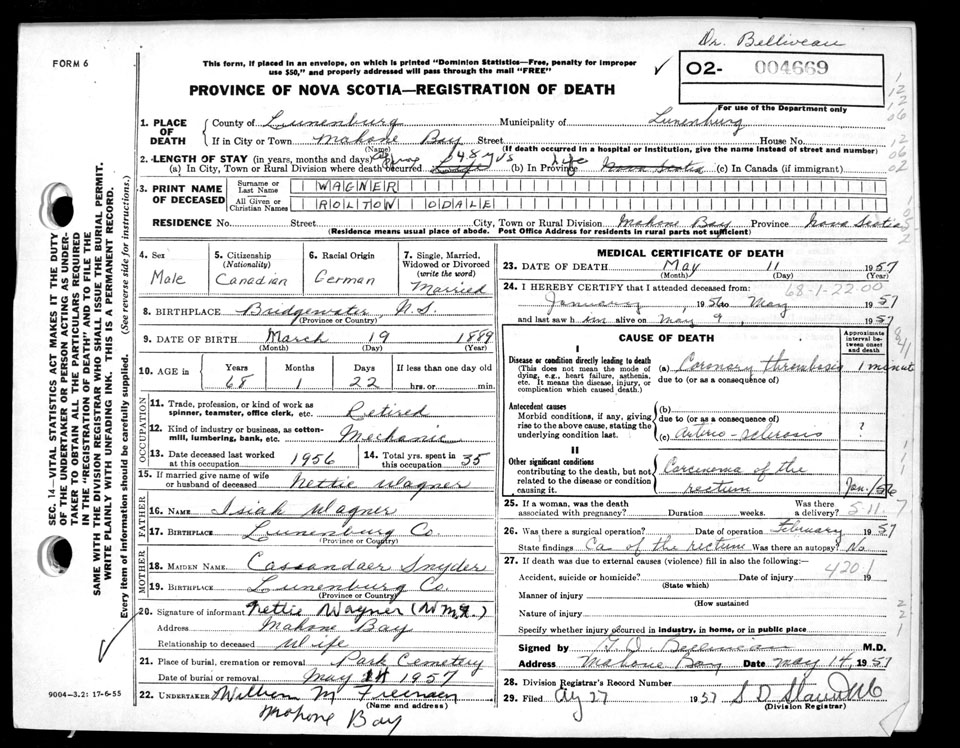 Dr. Belliveau
FORM 6
This form, if placed in an envelope, on which is printed "Dominion Statistics—Free, penalty for improper
use $50," and properly addressed will pass through the mail "FREE"
✓
02- 004669
PROVINCE OF NOVA SCOTIA—REGISTRATION OF DEATH
For use of the Department only
1. PLACE OF DEATH
County of Lunenburg Municipality of Lunenburg
If in City or Town Mahone Bay Street House No.
(Name) (If death occurred in a hospital or institution, give the name instead of street and number)
2. LENGTH OF STAY (in years, months and days)
(a) In City, Town or Rural Division where death occurred 48 yrs (b) In Province Life Nova Scotia (c) In Canada (if immigrant)
3. PRINT NAME OF DECEASED
Surname or Last Name WAGNER
All Given or Christian Names ROLTON ODALE
RESIDENCE No. Street City, Town or Rural Division Mahone Bay Province Nova Scotia
(Residence means usual place of abode. Post Office Address for residents in rural parts not sufficient)
4. Sex
Male
5. Citizenship
(Nationality)
Canadian
6. Racial Origin
German
7. Single, Married,
Widowed or Divorced
(write the word)
Married
8. BIRTHPLACE Bridgewater, N.S.
(Province or Country)
9. DATE OF BIRTH March 19 1889
(Month) (Day) (Year)
10. AGE in Years Months Days If less than one day old
68 1 22 hrs. or min.
OCCUPATION
11. Trade, profession, or kind of work as
spinner, teamster, office clerk, etc. Retired
12. Kind of industry or business, as cotton-
mill, lumbering, bank, etc. Mechanic
13. Date deceased last worked
at this occupation 1956
14. Total yrs. spent in
this occupation 35
15. If married give name of wife
or husband of deceased Nettie Wagner
FATHER
16. NAME Isiah Wagner
17. BIRTHPLACE Lunenburg Co.
(Province or Country)
MOTHER
18. MAIDEN NAME Cassandaer Snyder
19. BIRTHPLACE Lunenburg Co.
(Province or Country)
20. Signature of informant Nettie Wagner
Address Mahone Bay
Relationship to deceased Wife
21. Place of burial, cremation or removal Park Cemetery
Date of burial or removal May 14 1957
22. UNDERTAKER William M
(Name and address)
Mahone Bay
9004—3.2: 17-6-55
MEDICAL CERTIFICATE OF DEATH
23. DATE OF DEATH May 11 1957
(Month) (Day) (Year)
68-1-22.00
24. I HEREBY CERTIFY that I attended deceased from:
January, 1956 to May 1957
and last saw him alive on May 9, 1957
CAUSE OF DEATH
Approximate interval between onset and death
I
Disease or condition directly leading to death
(This does not mean the mode of
dying, e.g., heart failure, asthenia,
etc. It means the disease, injury, or
complication which caused death.)
(a) Coronary thrombosis 1 minute
due to (or as a consequence of)
Antecedent causes
Morbid conditions, if any, giving
rise to the above cause, stating the
underlying condition last.
(b)
due to (or as a consequence of)
(c) arterio-sclerosis ?
II
Other significant conditions
contributing to the death, but not
related to the disease or condition
causing it.
Carcinoma of the
rectum Jan./56
25. If a woman, was the death
associated with pregnancy? Duration weeks. Was there
a delivery?
5.11.7
26. Was there a surgical operation? Date of operation February 1957
State findings Ca of the rectum Was there an autopsy? No
27. If death was due to external causes (violence) fill in also the following:—
Accident, suicide or homicide? Date of injury 19
(State which)
420.1
Manner of injury
(How sustained)
Nature of injury
Specify whether injury occurred in industry, in home, or in public place
Signed by Belliveau M.D.
Address Mahone Bay Date May 14, 1957
28. Division Registrar's Record Number
29. Filed 27 1957
(Division Registrar)
SEC. 14—VITAL STATISTICS ACT MAKES IT THE DUTY
OF THE UNDERTAKER OR PERSON ACTING AS UNDER-
TAKER TO OBTAIN ALL THE PARTICULARS REQUIRED
IN THE "REGISTRATION OF DEATH" AND TO FILE THE
SAME WITH THE DIVISION REGISTRAR WHO SHALL ISSUE THE BURIAL PERMIT.
WRITE PLAINLY WITH UNFADING INK. THIS IS A PERMANENT RECORD.
Every item of information should be carefully supplied. (See reverse side for instructions.)